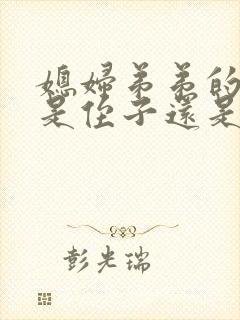 媳婦弟弟的
是侄子還是
彭光瑞